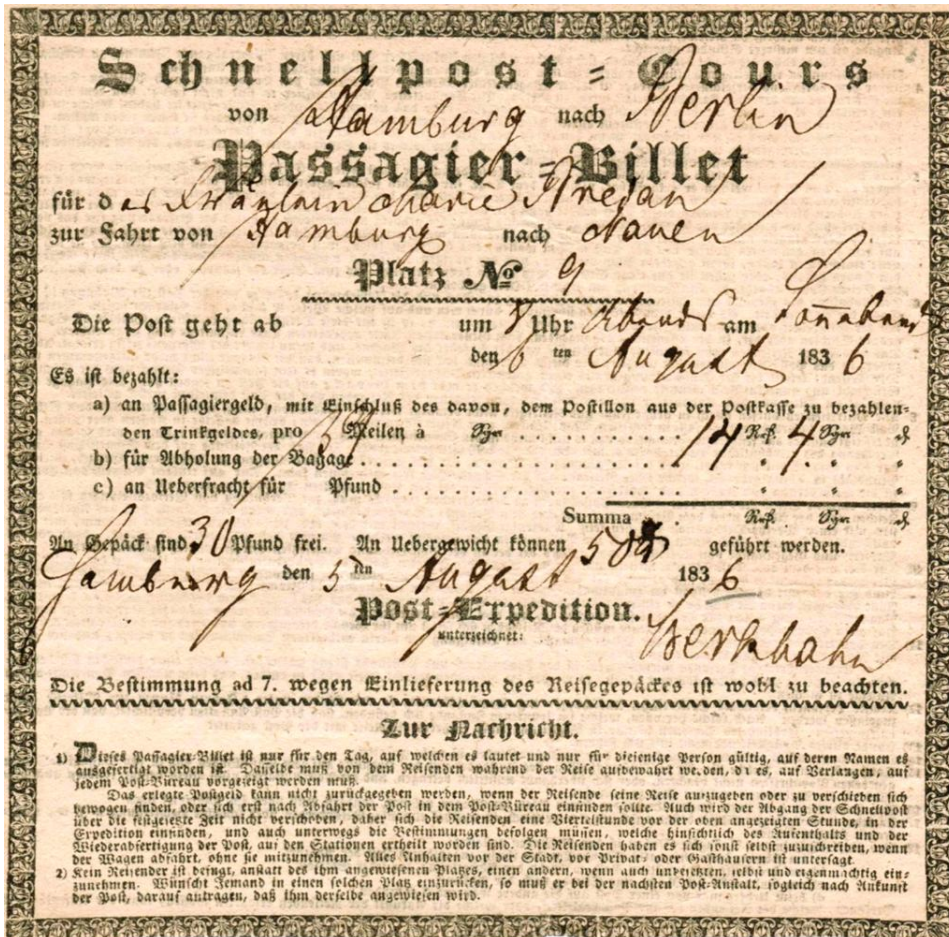 Schnellpost-Cours
von Hamburg nach Berlin
Passagier-Billet
für das Fräulein Marie
zur Fahrt von Hamburg nach Nauen
Platz No 9
Die Post geht ab um 8 Uhr Abends am Sonnabend
den 6 ten August 1836
Es ist bezahlt:
a) an Passagiergeld, mit Einschluß des davon, dem Postillon aus der Postkasse zu bezahlen-
den Trinkgeldes, pro Meilen à Sgr. 14 Rtl. 4 Sgr. ₰
b) für Abholung der Bagage
c) an Ueberfracht für Pfund
Summa Rtl. Sgr. ₰
An Gepäck sind 30 Pfund frei. An Uebergewicht können 50 geführt werden.
Hamburg den 5 ten August 1836
Post-Expedition.
unterzeichnet:
Die Bestimmung ad 7. wegen Einlieferung des Reisegepäckes ist wohl zu beachten.
Zur Nachricht.
1) Dieses Passagier-Billet ist nur für den Tag, auf welchen es lautet und nur für diejenige Person gültig, auf deren Namen es
ausgefertigt worden ist. Dasselbe muß von dem Reisenden während der Reise aufbewahrt werden, da es, auf Verlangen, auf
jedem Post-Büreau vorgezeigt werden muß.
Das erlegte Postgeld kann nicht zurückgegeben werden, wenn der Reisende seine Reise aufzugeben oder zu verschieben sich
bewogen finden, oder sich erst nach Abfahrt der Post in dem Post-Büreau einfinden sollte. Auch wird der Abgang der Schnellpost
über die festgesetzte Zeit nicht verschoben, daher sich die Reisenden eine Viertelstunde vor der oben angezeigten Stunde, in der
Expedition einfinden, und auch unterwegs die Bestimmungen befolgen müssen, welche hinsichtlich des Aufenthalts und der
Wiederabfertigung der Post, auf den Stationen ertheilt worden sind. Die Reisenden haben es sich sonst selbst zuzuschreiben, wenn
der Wagen abfährt, ohne sie mitzunehmen. Alles Anhalten vor der Stadt, vor Privat- oder Gasthäusern ist untersagt.
2) Kein Reisender ist befugt, anstatt des ihm angewiesenen Platzes, einen andern, wenn auch unbesetzten, selbst und eigenmächtig ein-
zunehmen. Wünscht Jemand in einen solchen Platz einzurücken, so muß er bei der nächsten Post-Anstalt, sogleich nach Ankunft
der Post, darauf antragen, daß ihm derselbe angewiesen wird.